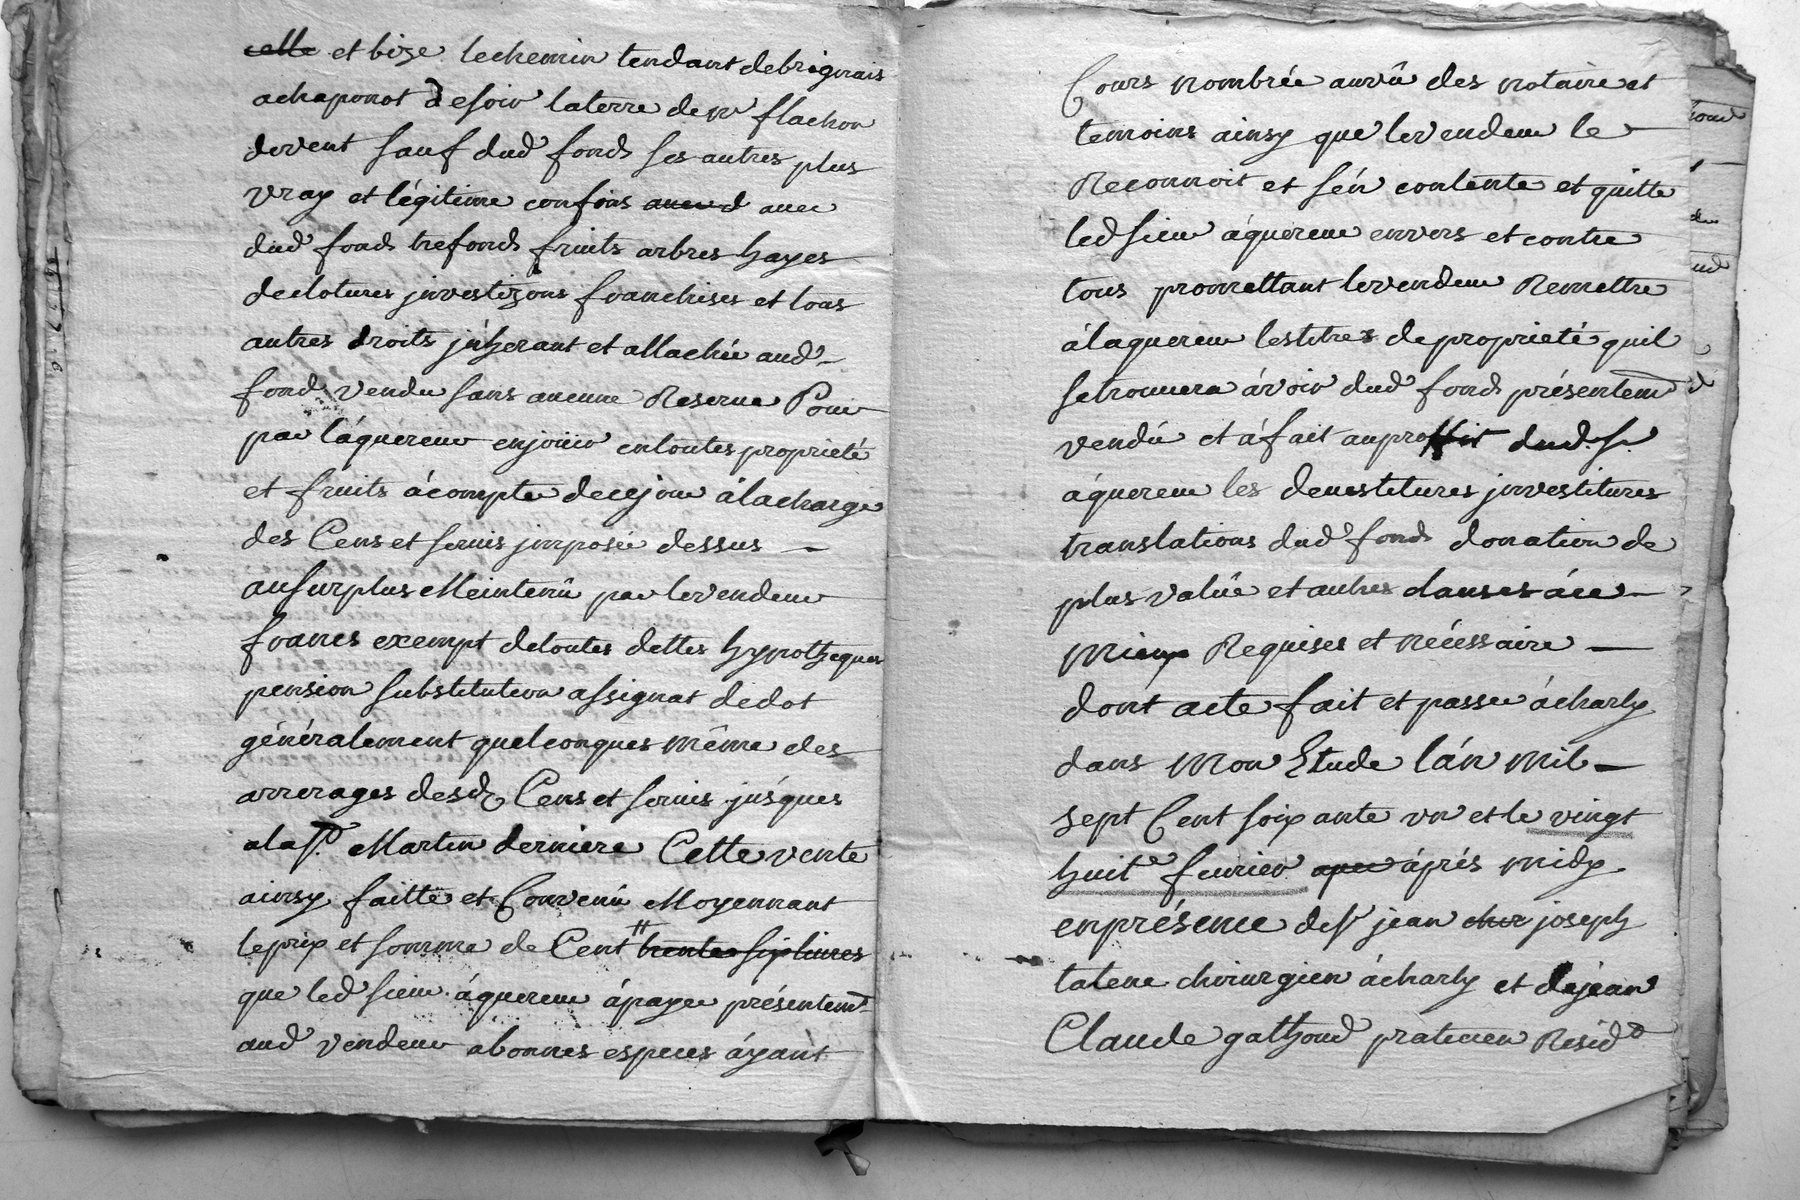 celle et bize lechemin tendant debrignais
achaponot desoir laterre de mr flachon
devent sauf dud fonds ses autres plus
vray et légitime confins avec
dud fonds trefonds fruits arbres hayes
declotures jnvestizons franchises et tous
autres droits jnherant et attachée aud
fond vendu sans aucune Reserve Pour
par láquereur enjouir entoutes proprieté
et fruits ácompter decejour álacharge
des Cens et servis jmposée dessus
ausurplus Meintenû par levendeur
francs exempt detoutes dettes hypotheques
pension substitution assignat dedot
généralement quelconques même des
arrerages desd Cens et servis jusques
ala st Martin derniere Cette vente
ainsy faitte et Convenû Moyennant
leprix et somme de Cent trente six livres
que led sieur áquereur ápayer présentemt
aud vendeur abonnes especes áyant
Cours nombrée auvû des notaire et
temoins ainsy que levendeur le
Reconnoit et sén contente et quitte
led sieur áquereur envers et contre
tous promettant levendeur Remettre
álaquereur lestitres de proprieté quil
setrouvera ávoir dud fonds présentemt
vendû et áfait auproffit dud. sr.
áquereur les devestitures jnvestitures
translations dud fonds donation de
plus valûe et autres clauses áce
Mieux Requises et nécéssaire
dont acte fait et passé ácharly
dans mon Etude lán mil
sept Cent soixante un et le vingt
huit fevrier áprés midy
enprésence de sr jean joseph
chirurgien ácharly et dejean
Claude gathoud praticien Resid